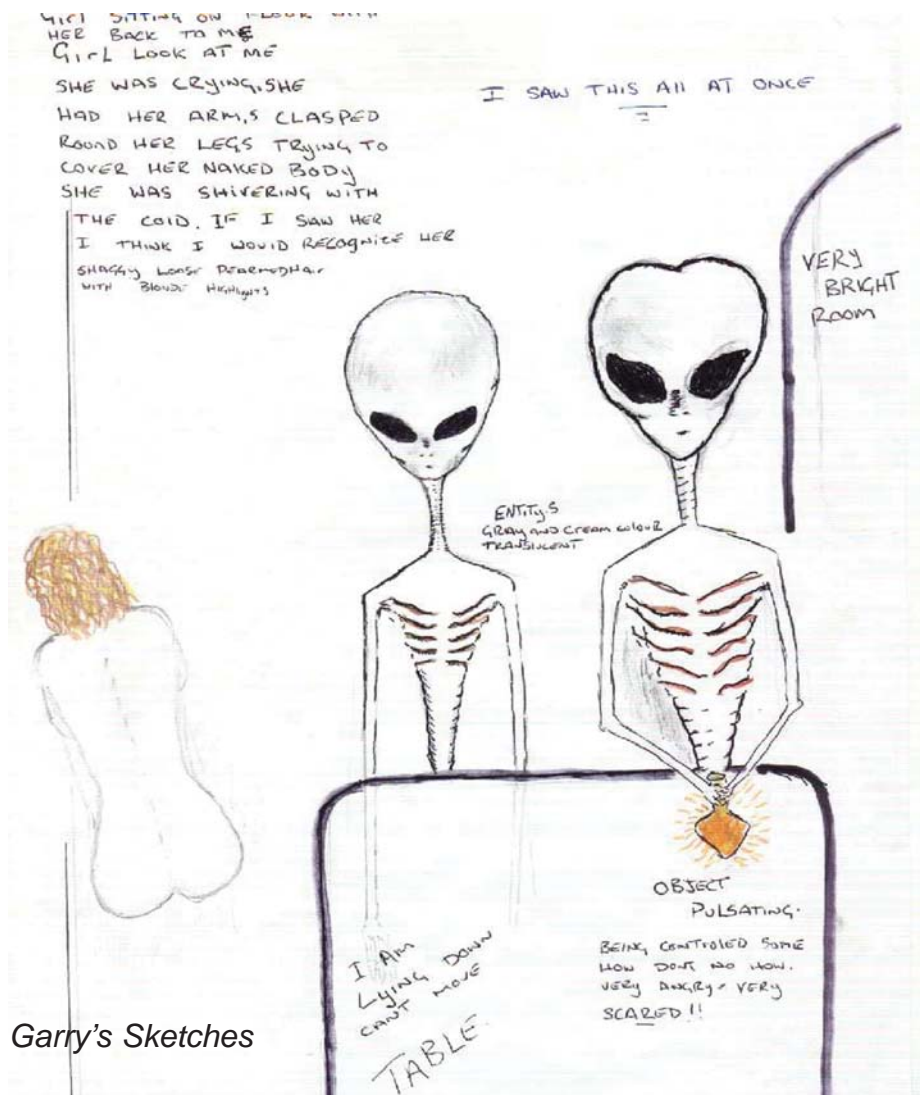 GIRL SITTING ON FLOOR WITH
HER BACK TO ME
GIRL LOOK AT ME
SHE WAS CRYING. SHE
HAD HER ARM,S CLASPED
ROUND HER LEGS TRYING TO
COVER HER NAKED BODY
SHE WAS SHIVERING WITH
THE COLD. IF I SAW HER
I THINK I WOULD RECOGNIZE HER
SHAGGY LOOSE PEARMEDHAIR
WITH BLONDE HIGHLIGHTS
I SAW THIS All AT ONCE
VERY
BRIGHT
ROOM
ENTITY.S
GRAY AND CREAM COLOUR
TRANSLUCENT
OBJECT
PULSATING.
BEING CONTROLED SOME
HOW DONT NO HOW.
VERY ANGRY - VERY
SCARED!!
I AM
LYING DOWN
CANT MOVE
TABLE.
Garry's Sketches